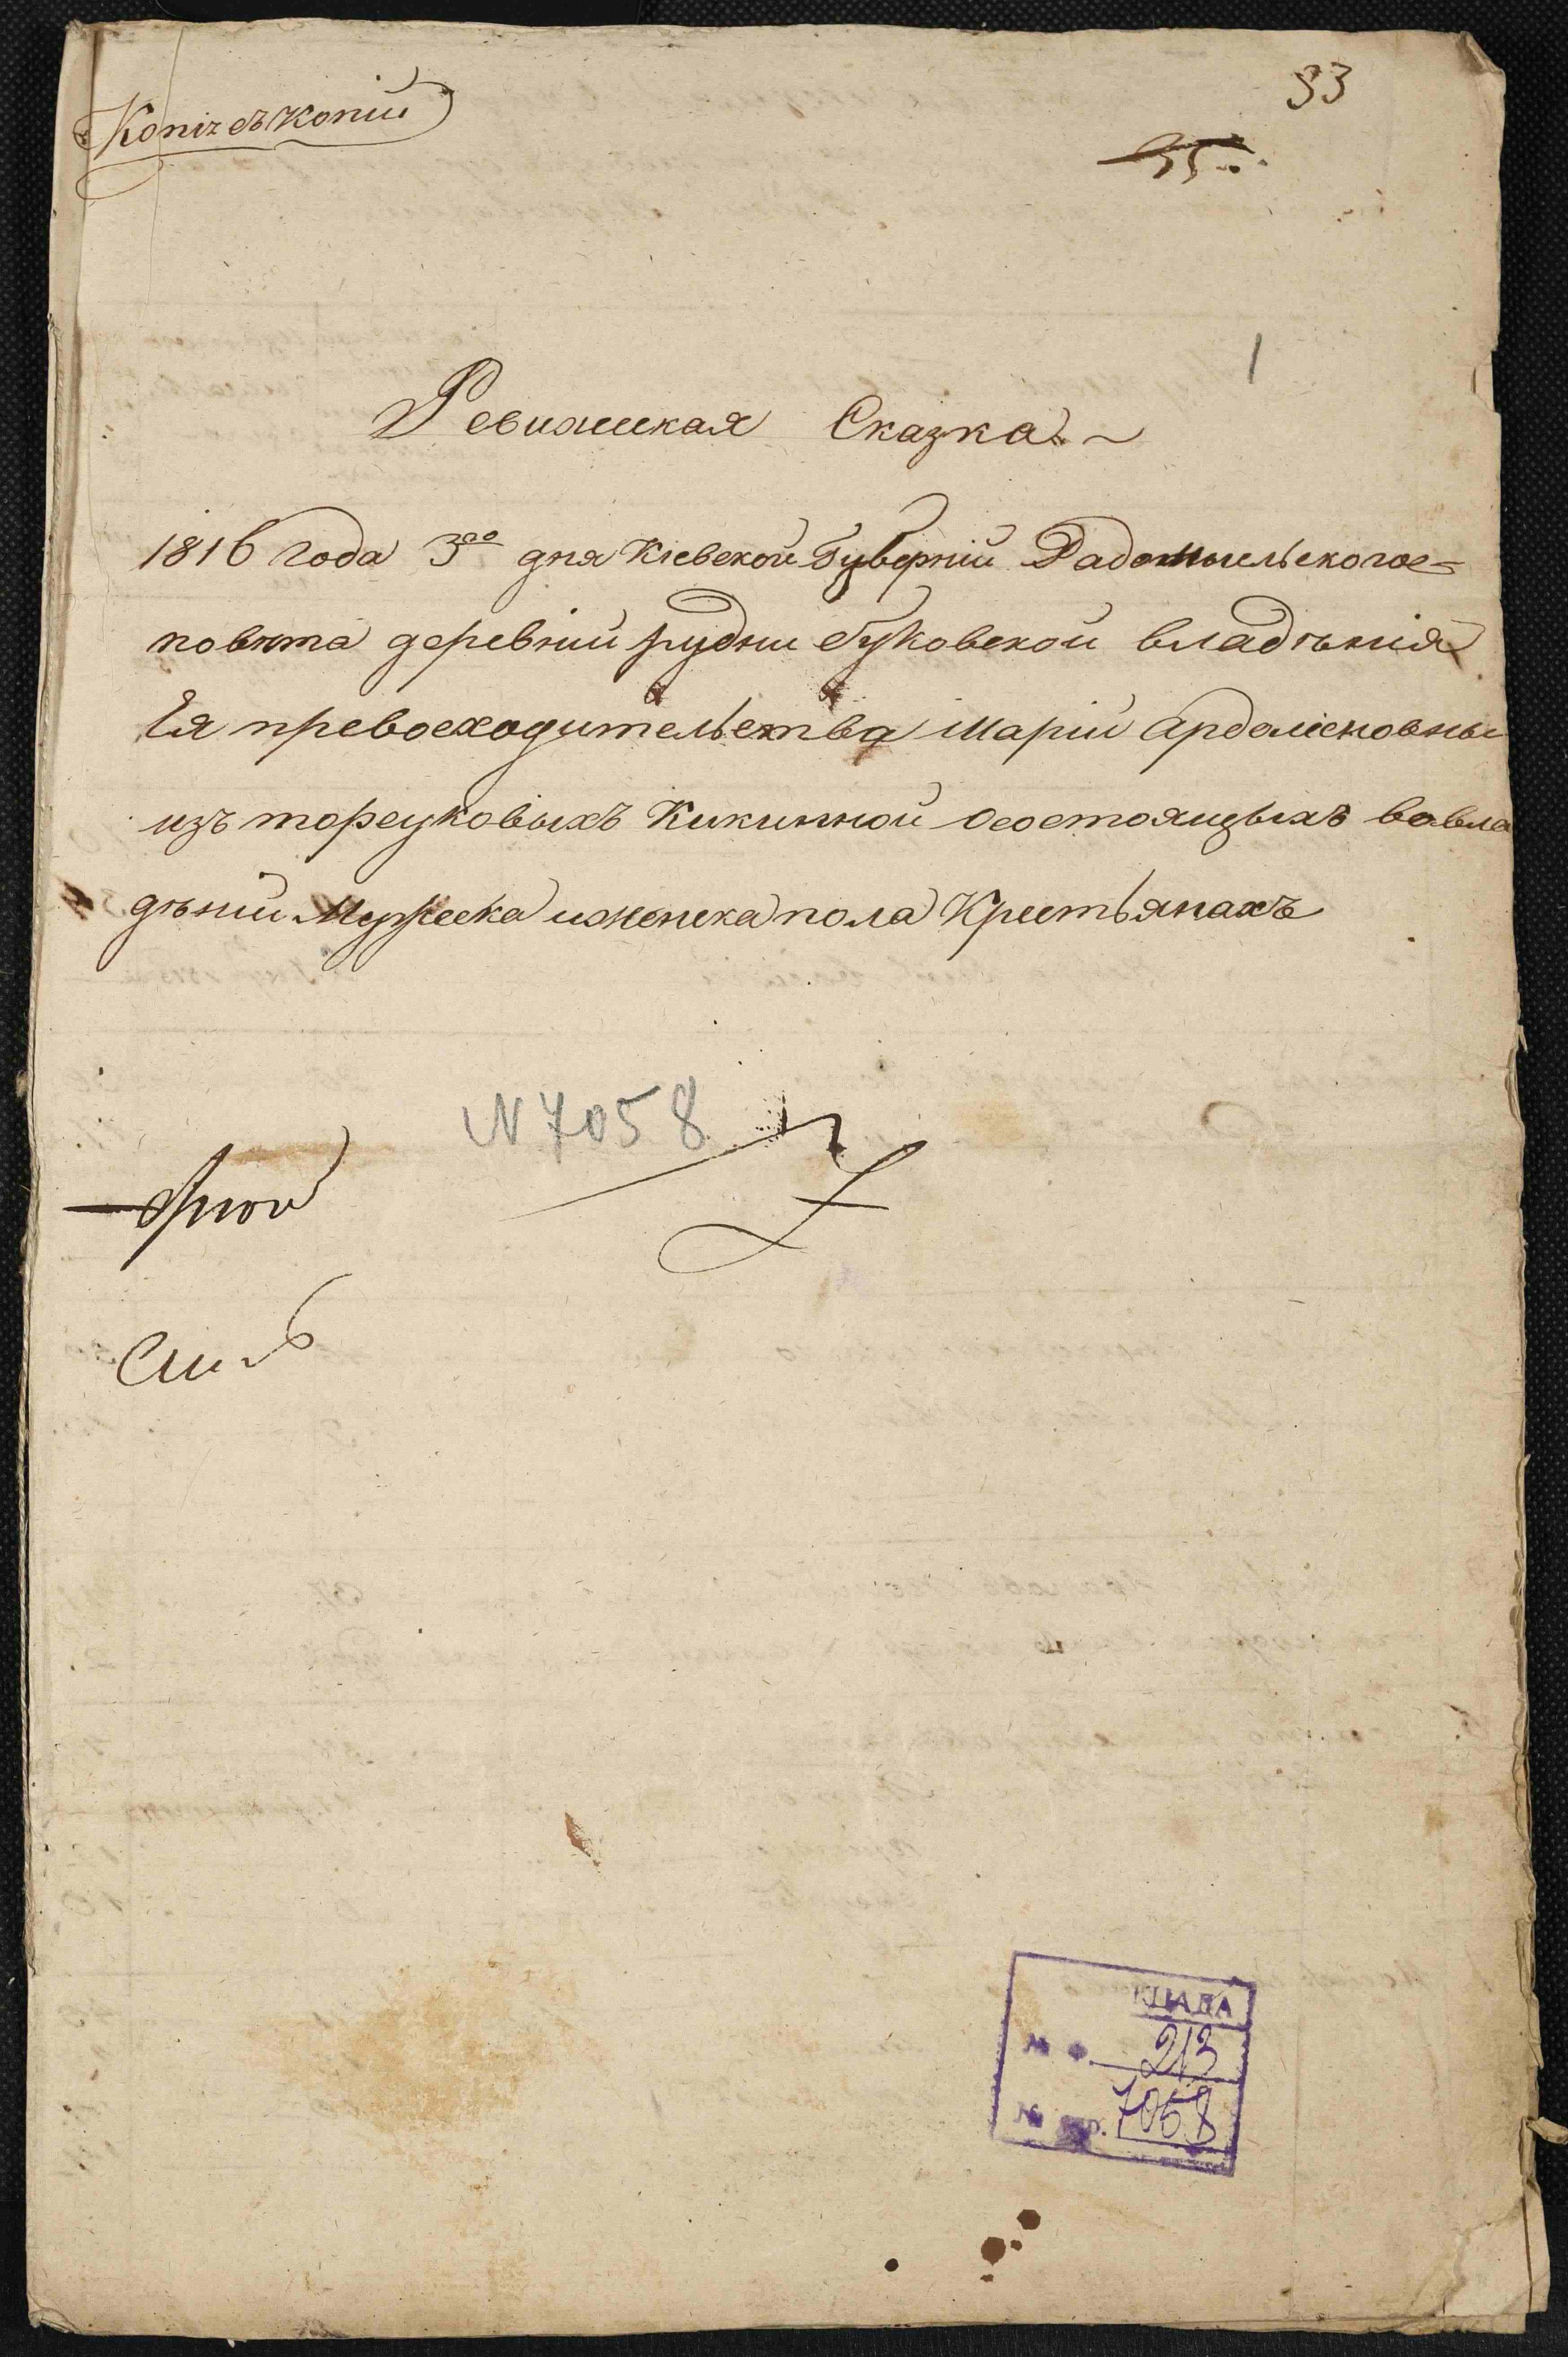 Копія съ копіи
93
55
1
Ревижская Сказка
1816 года 3го дня Кіевской Губерній Радомысльского
повѣта деревний рудни буковской владѣния
Ея превосходительства Маріи Ардаліоновны
изъ торсуковыхъ Кикинной Осостоящыхъ вовла
дѣний Мужеска иженска пола Крестьянахъ
N 7058
КЦАДА
№ ф. 213
№ 7058